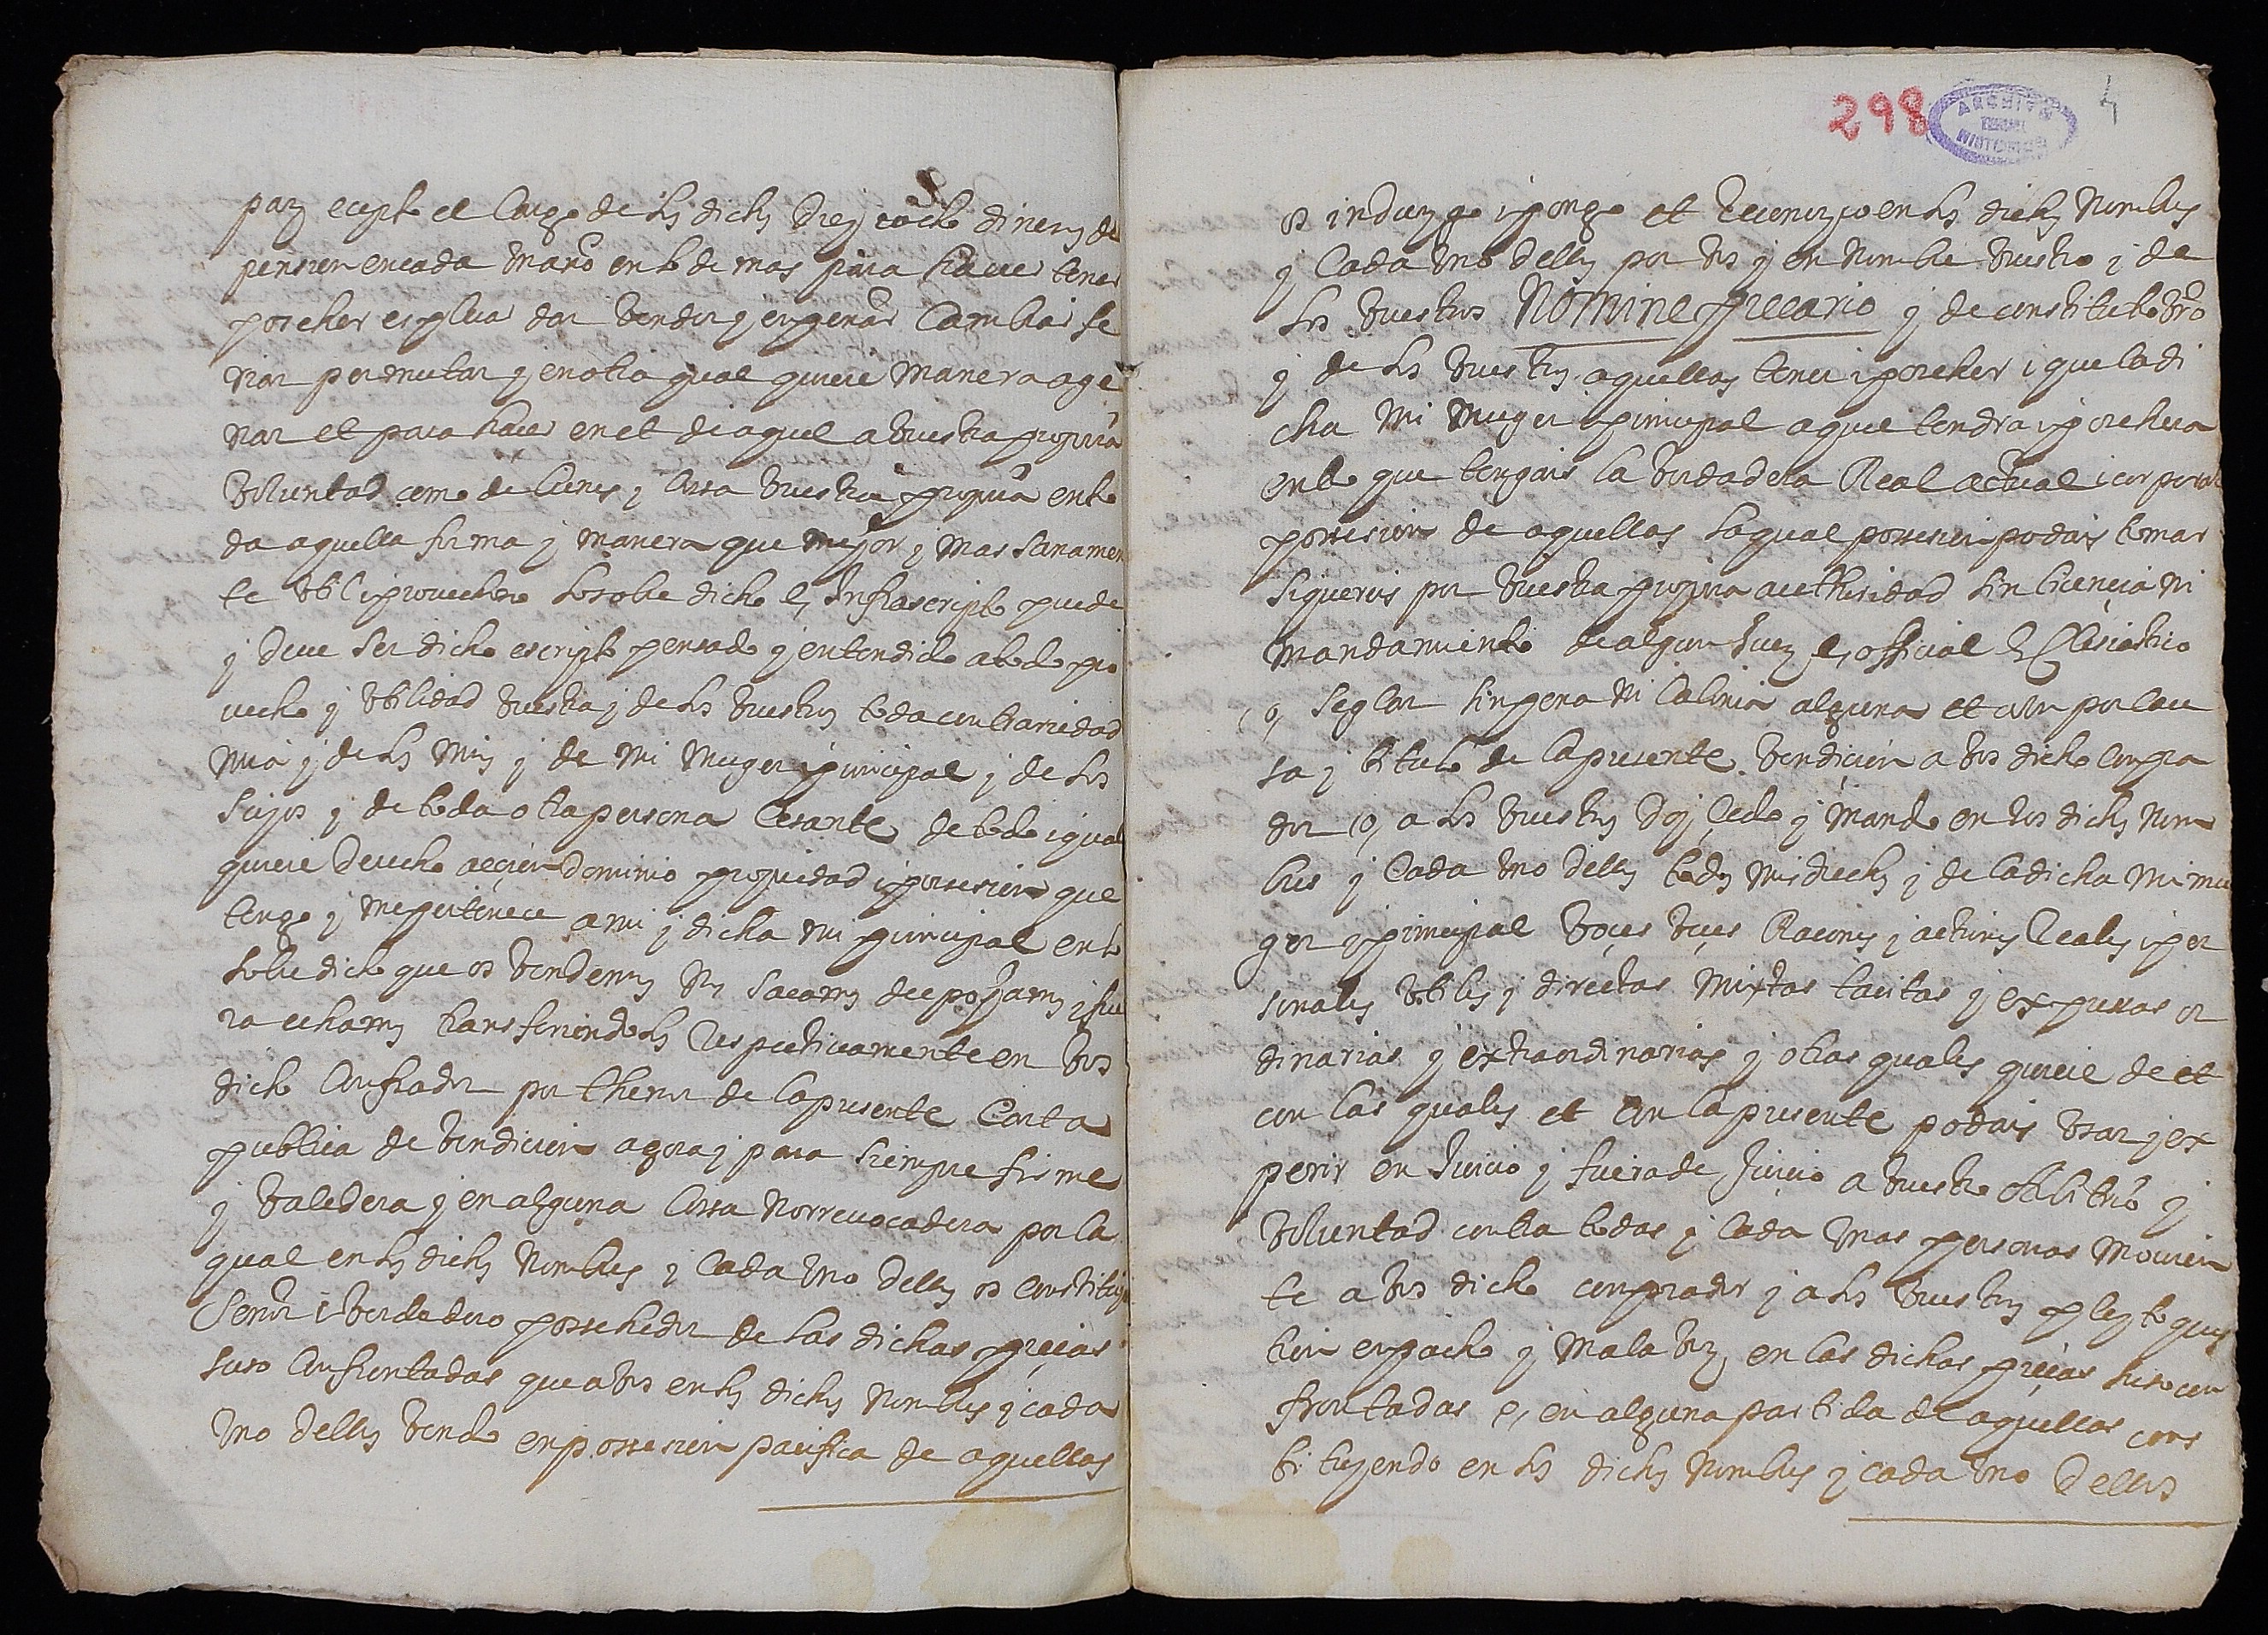 paz ecepto el Cargo de los dichos diez i ocho dineros de
pension en cada un año en lo de mas para haver tener
posehir espleitar dar vender y enpenar Cambiar fe
riar permutar y en otra qual quiere manera age
nar et para hacer en et de aquel a vuestra propria
voluntad como de bienes y Cossa vuestra propria en to
da aquella forma y manera que mejor y mas sanamen
te util i provechoso lo sobre dicho e, infrascripto puede
y deve ser dicho escripto pensado y entendido a todo pro
vecho y utilidad vuestra y de los vuestros toda contrariedad
mia y de los mios y de mi muger i principal y de los
suyos y de toda otra persona Cesante de todo i qual
quiere derecho accion dominio propiedad i possesion que
tengo y me pertenece a mi y dicha mi principal en lo
sobre dicho que os vendemos nos sacamos despojamos i fue
ra echamos transferiendolos respectivamente en vos
dicho Conprador por thenor de la presente Carta
publica de vendicion agora y para siempre firme
y valedera y en alguna Cossa no rrevocadera por la
qual en los dichos nombres y cada uno dellos os constituyo
señor i verdadero possehedor de las dichas pieças
suso Confrontadas que a vos en los dichos nombres y cada
uno dellos vendo en possesion pacifica de aquellas
298
4
ARCHIVO
HISTORICO
os induzgo i pongo et reconozco en los dichos nombres
y Cada uno dellos por vos y en nombre vuestro y de
los vuestros Nomine precario y de constituto vro
y de los vuestros aquellas tener i posehir i que la di
cha mi muger i principal aquel tendra i posehera
en lo que tengais la verdadera Real actual i corporal
possesion de aquellas la qual possesion podais tomar
si quereis por vuestra propria authoridad sin licencia ni
mandamiento de algun Juez e, official Ecclesiastico
o, seglar sin pena ni calonia alguna et aun por cau
sa y titulo de la presente vendicion a vos dicho Conpra
dor o, a los vuestros doy cedo y mando en los dichos nom
bres y Cada uno dellos todos mis drechos y de la dicha mi mu
ger i principal voçes veçes Racones y actiones Reales i per
sonales utiles y directas mixtas tacitas y expressas or
dinarias y extraordinarias y otras quales quiere de et
con las quales et con la presente podais usar y ex
perir en Juicio y fuera de Juicio a vuestro albitrio y
voluntad contra todas y Cada unas personas movien
te a vos dicho comprador y a los vuestros pleyto ques
tion enpacho y mala voz en las dichas pieças suso con
frontadas e, en alguna partida de aquellas cons
tituyendo en los dichos nombres y cada uno dellos